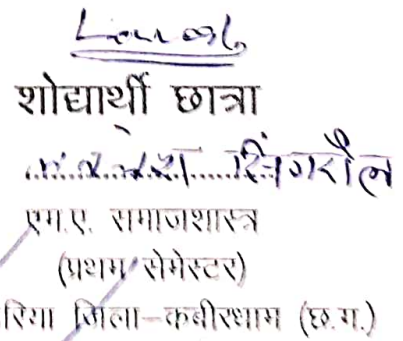 शोद्यार्थी छात्रा
सिंगरौल
एम.ए. समाजशास्त्र
(प्रथम सेमेस्टर)
रिया जिला–कबीरधाम (छ.ग.)